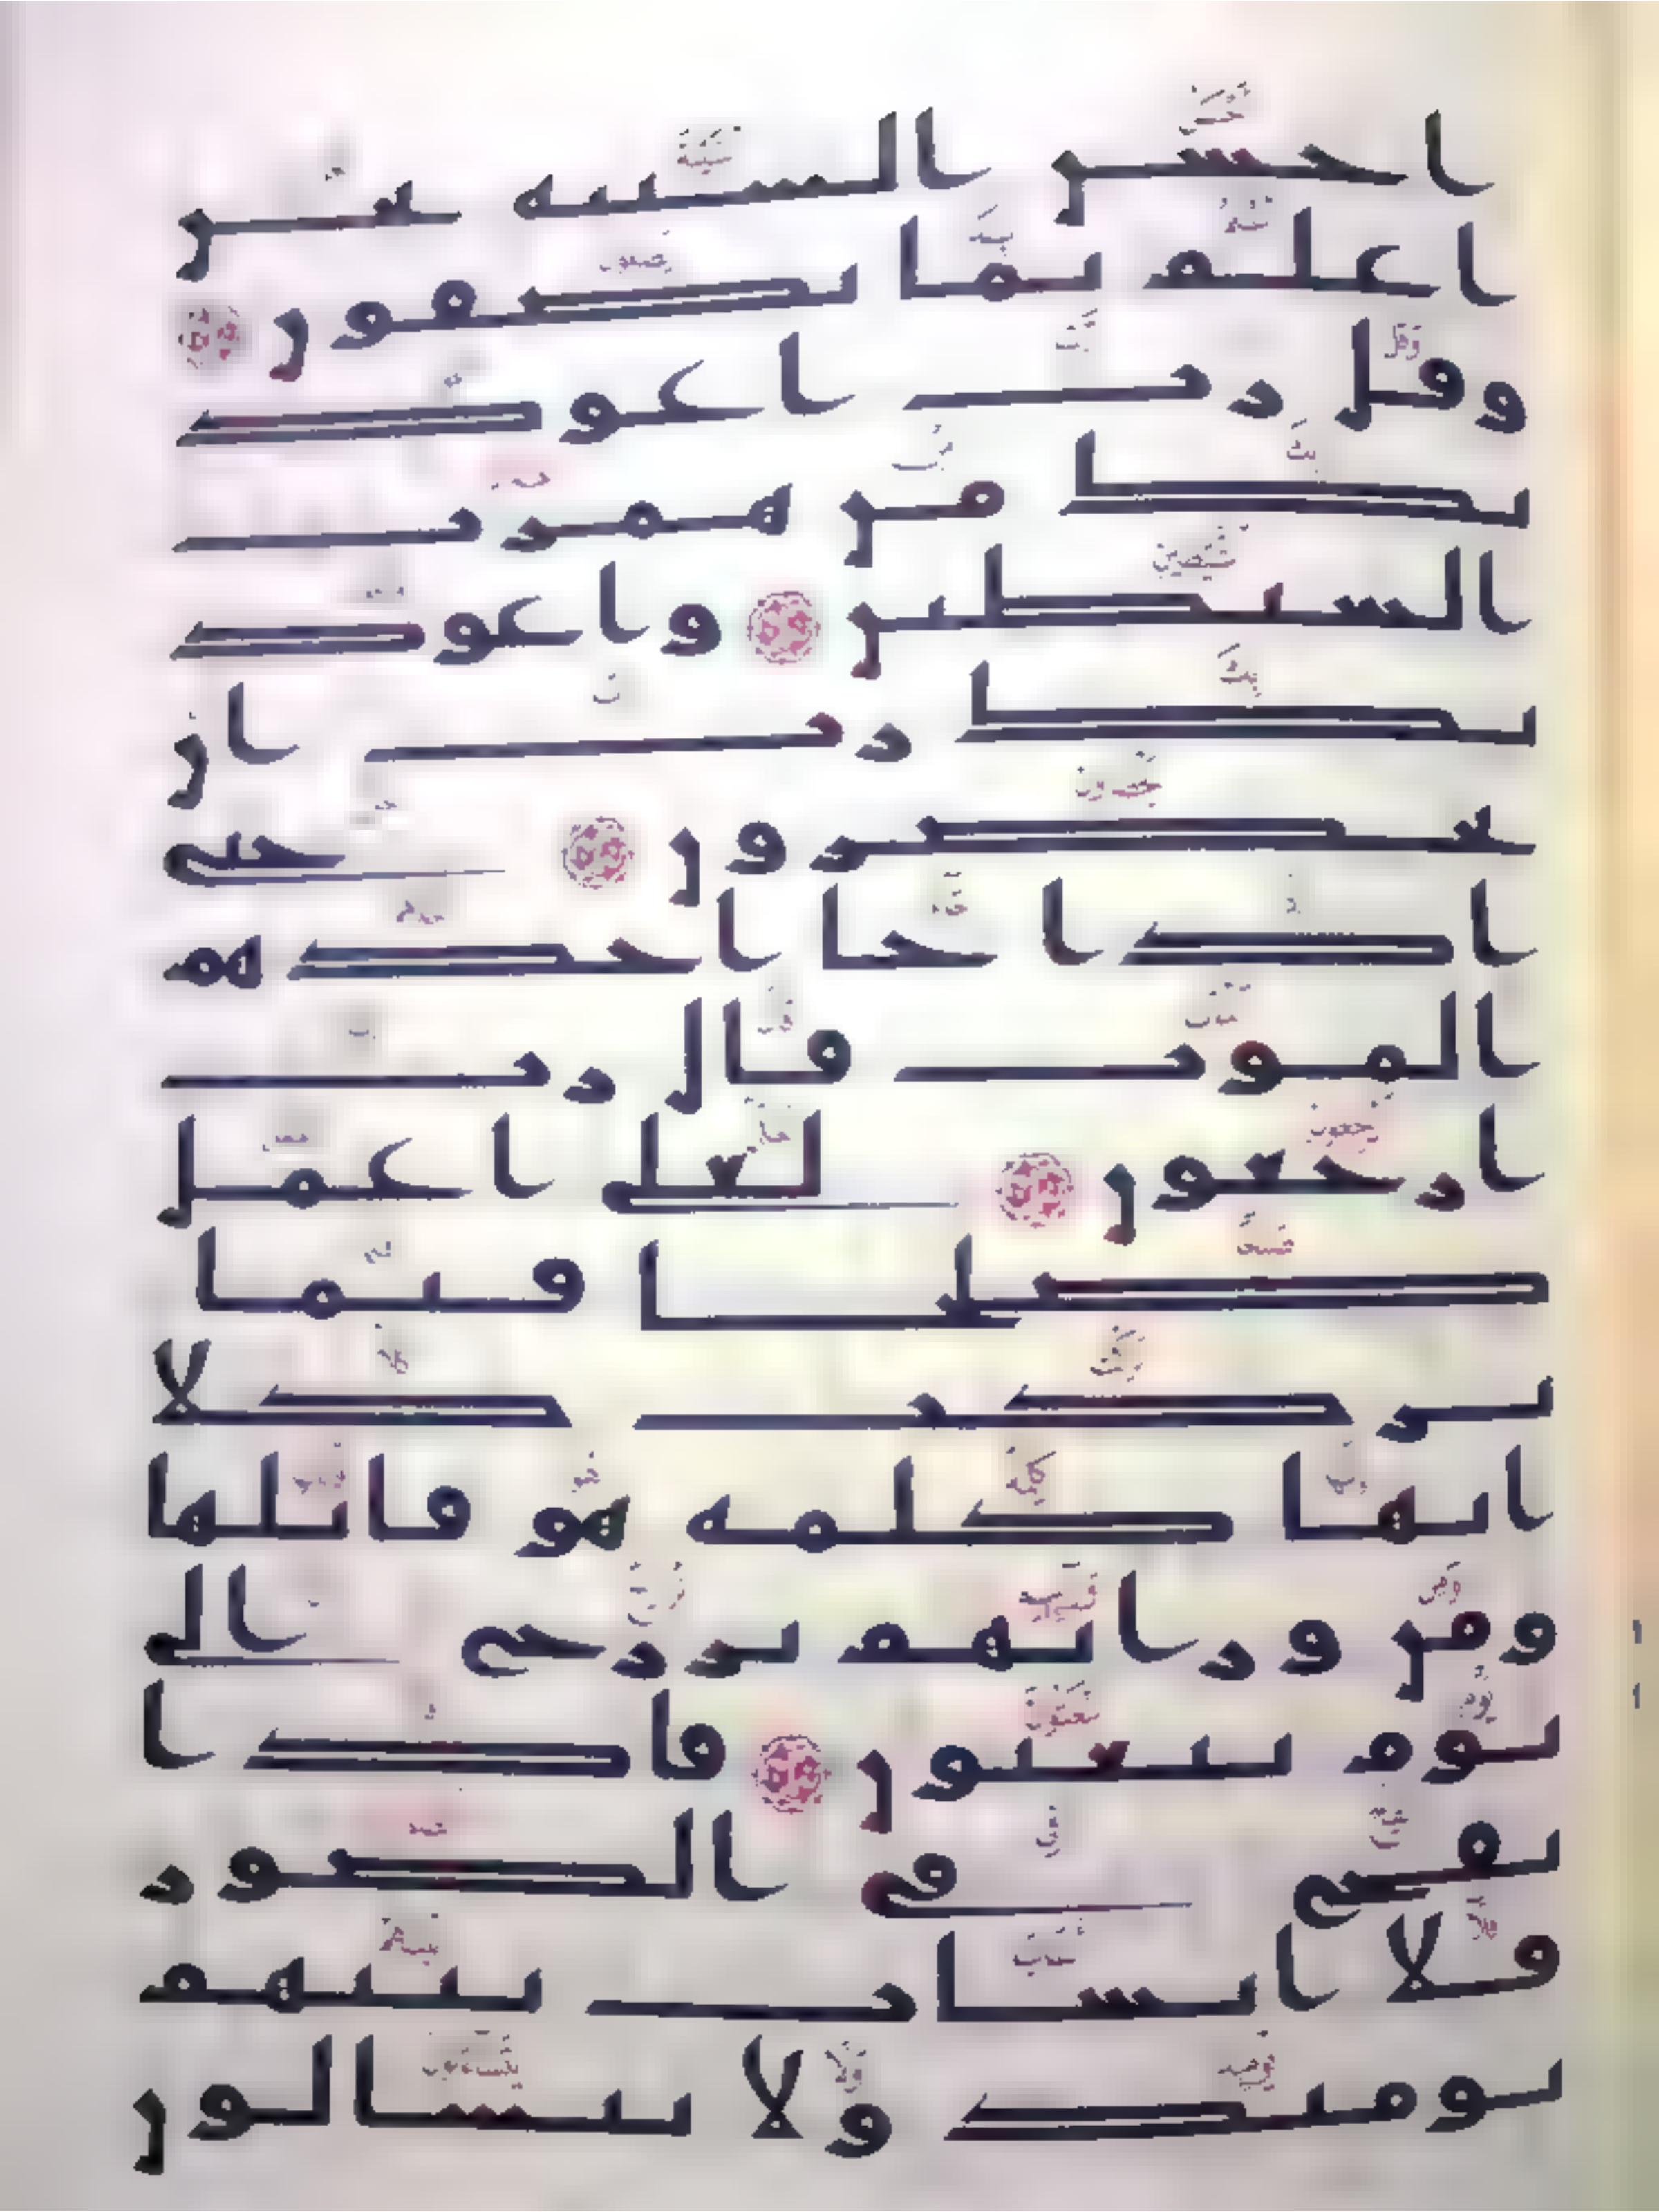 احسن السيئة نحن
اعلم بما يصفون
وقل رب اعوذ
بك من همزت
الشيطين واعوذ
بك رب ان
يحضرون حتى
اذا جا احدهم
الموت قال رب
ارجعون لعلي اعمل
صلحا فيما
تركت كلا
انها كلمة هو قائلها
ومن ورائهم برزخ الى
يوم يبعثون فاذا
نفخ في الصور
فلا انساب بينهم
يومئذ ولا يتسالون